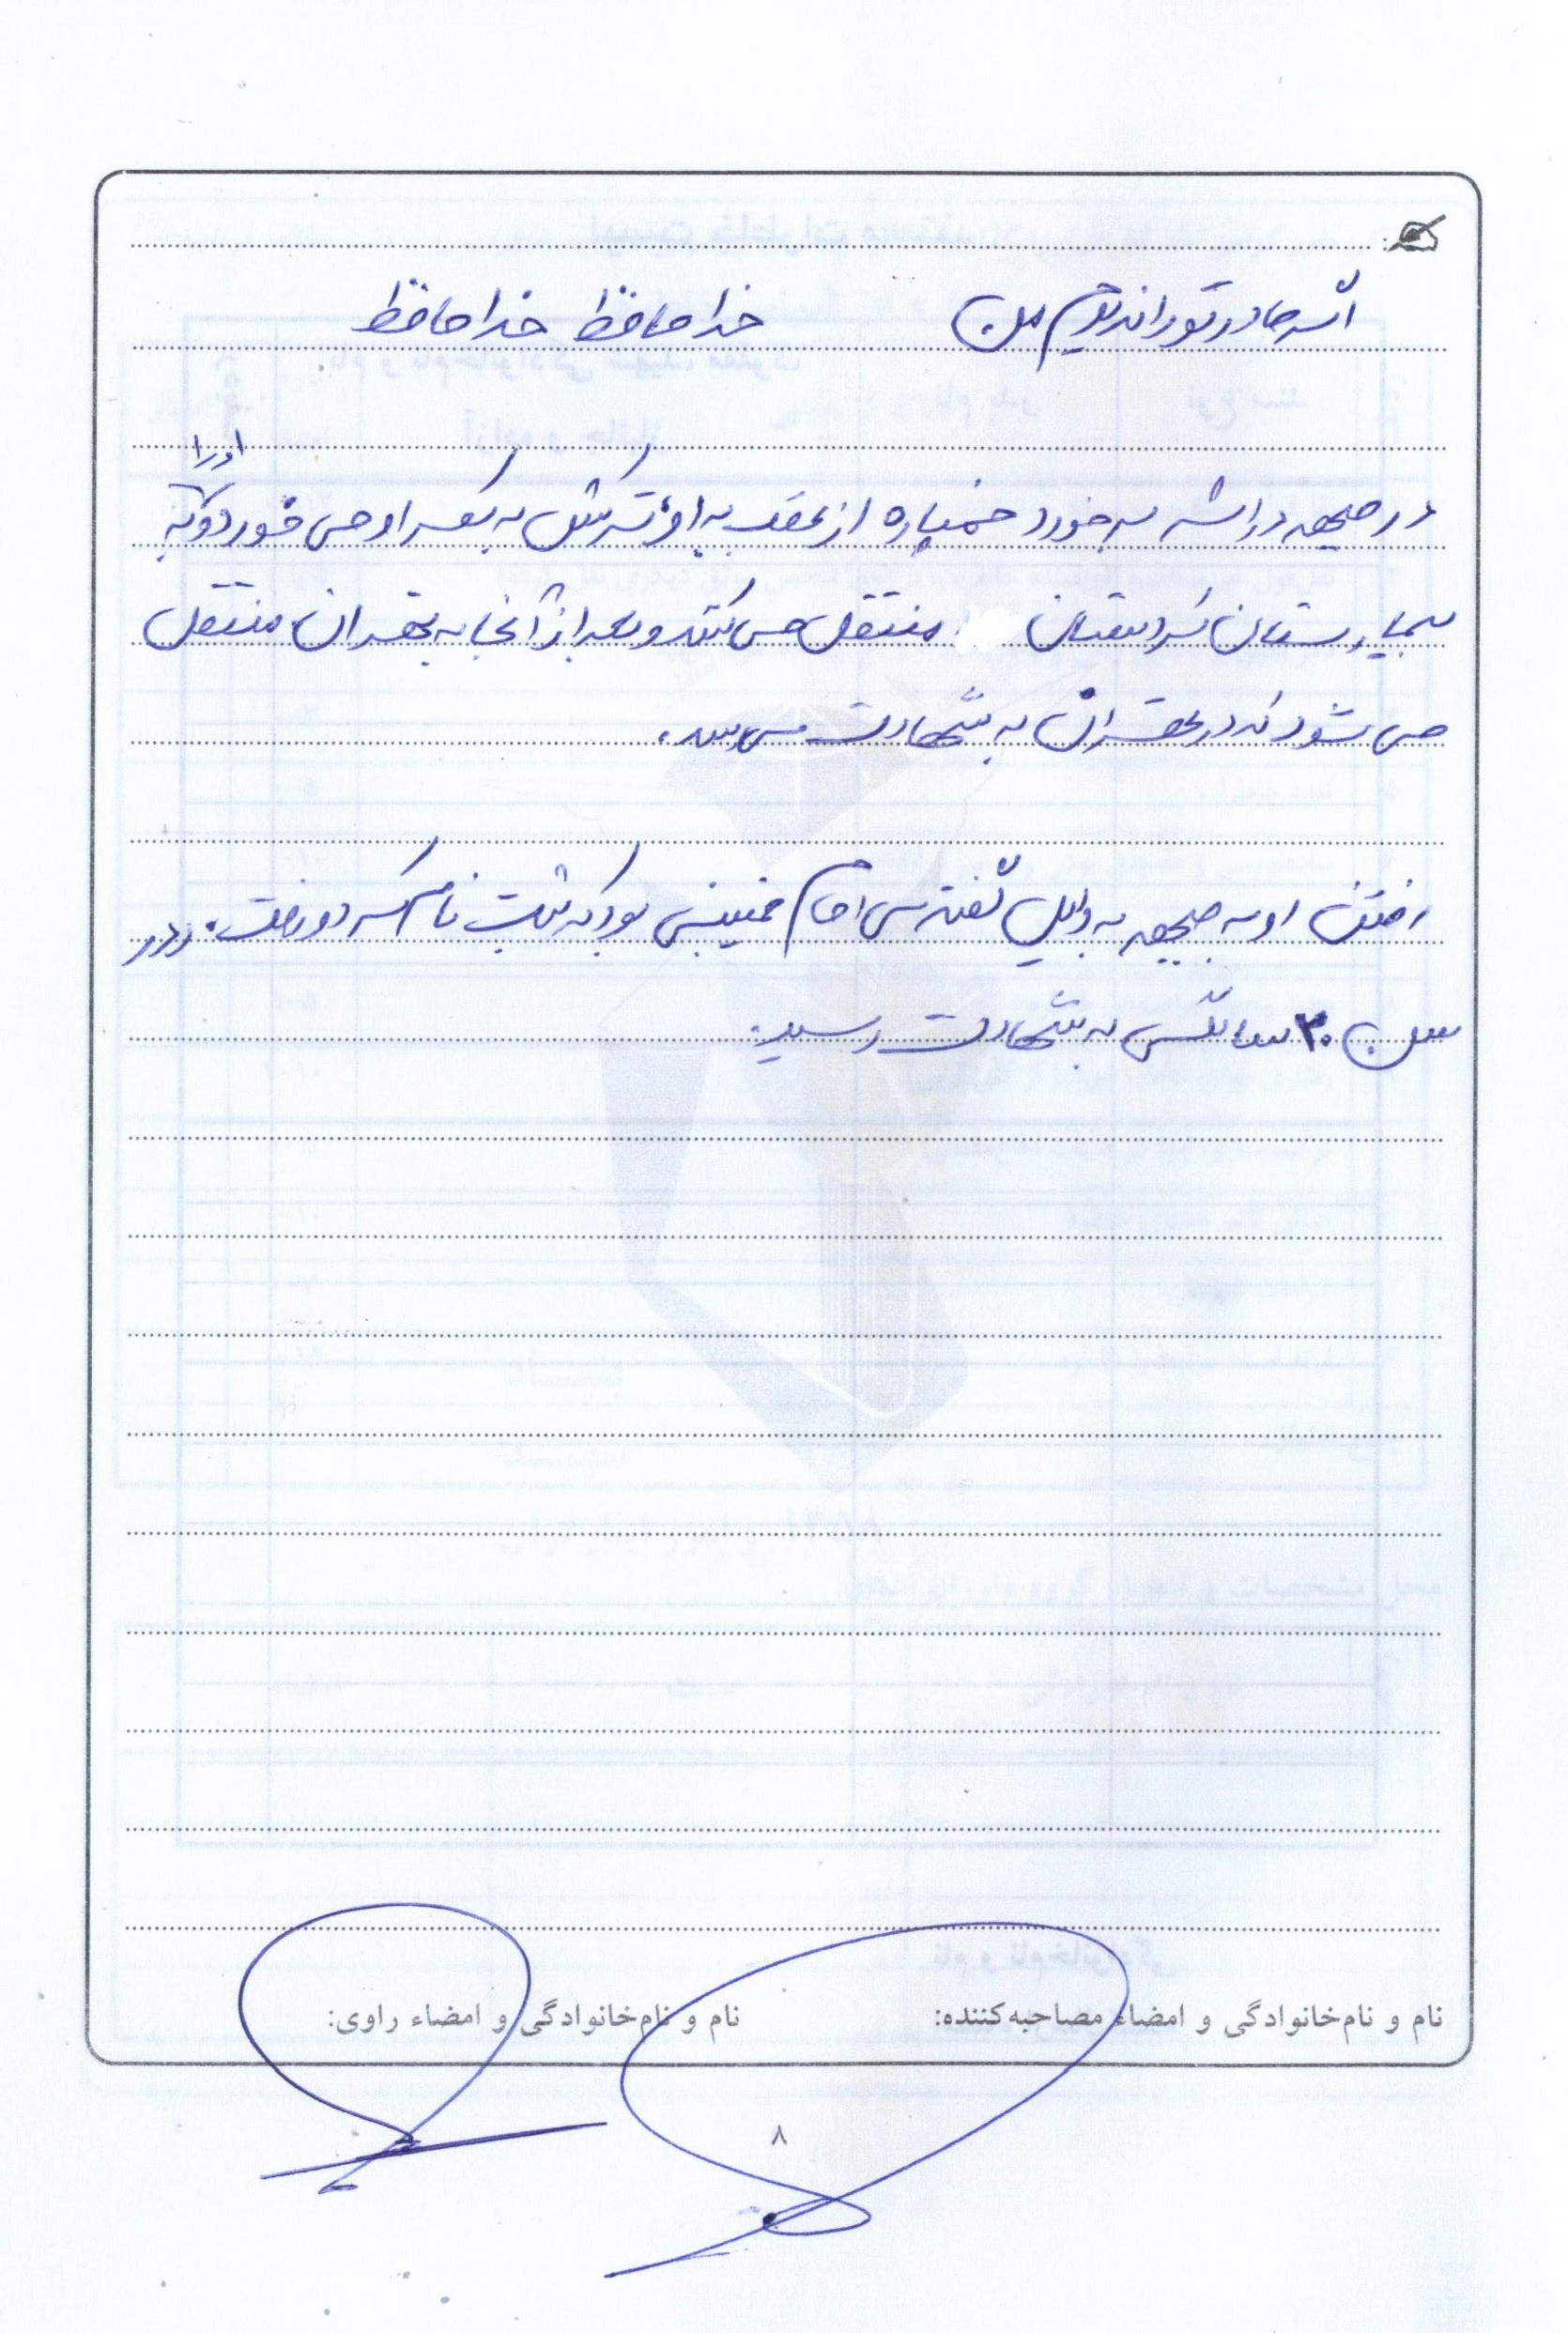 اگر مادر تو را ندیدم من خداحافظ خداحافظ
در جبهه در اثر برخورد خمپاره از عقب به او ترکش به کمر او می خورد و به او را
بیمارستان کردستان منتقل می کنند و بعد از آنجا به تهران منتقل
می شود که در تهران به شهادت می رسد.
رفتن او به جبهه به دلیل گفته ی امام خمینی بود که ثبت نام کرد و رفت. و در
سن ۲۰ سالگی به شهادت رسید.
نام و نام‌خانوادگی و امضاء مصاحبه‌کننده: نام و نام‌خانوادگی و امضاء راوی:
۸